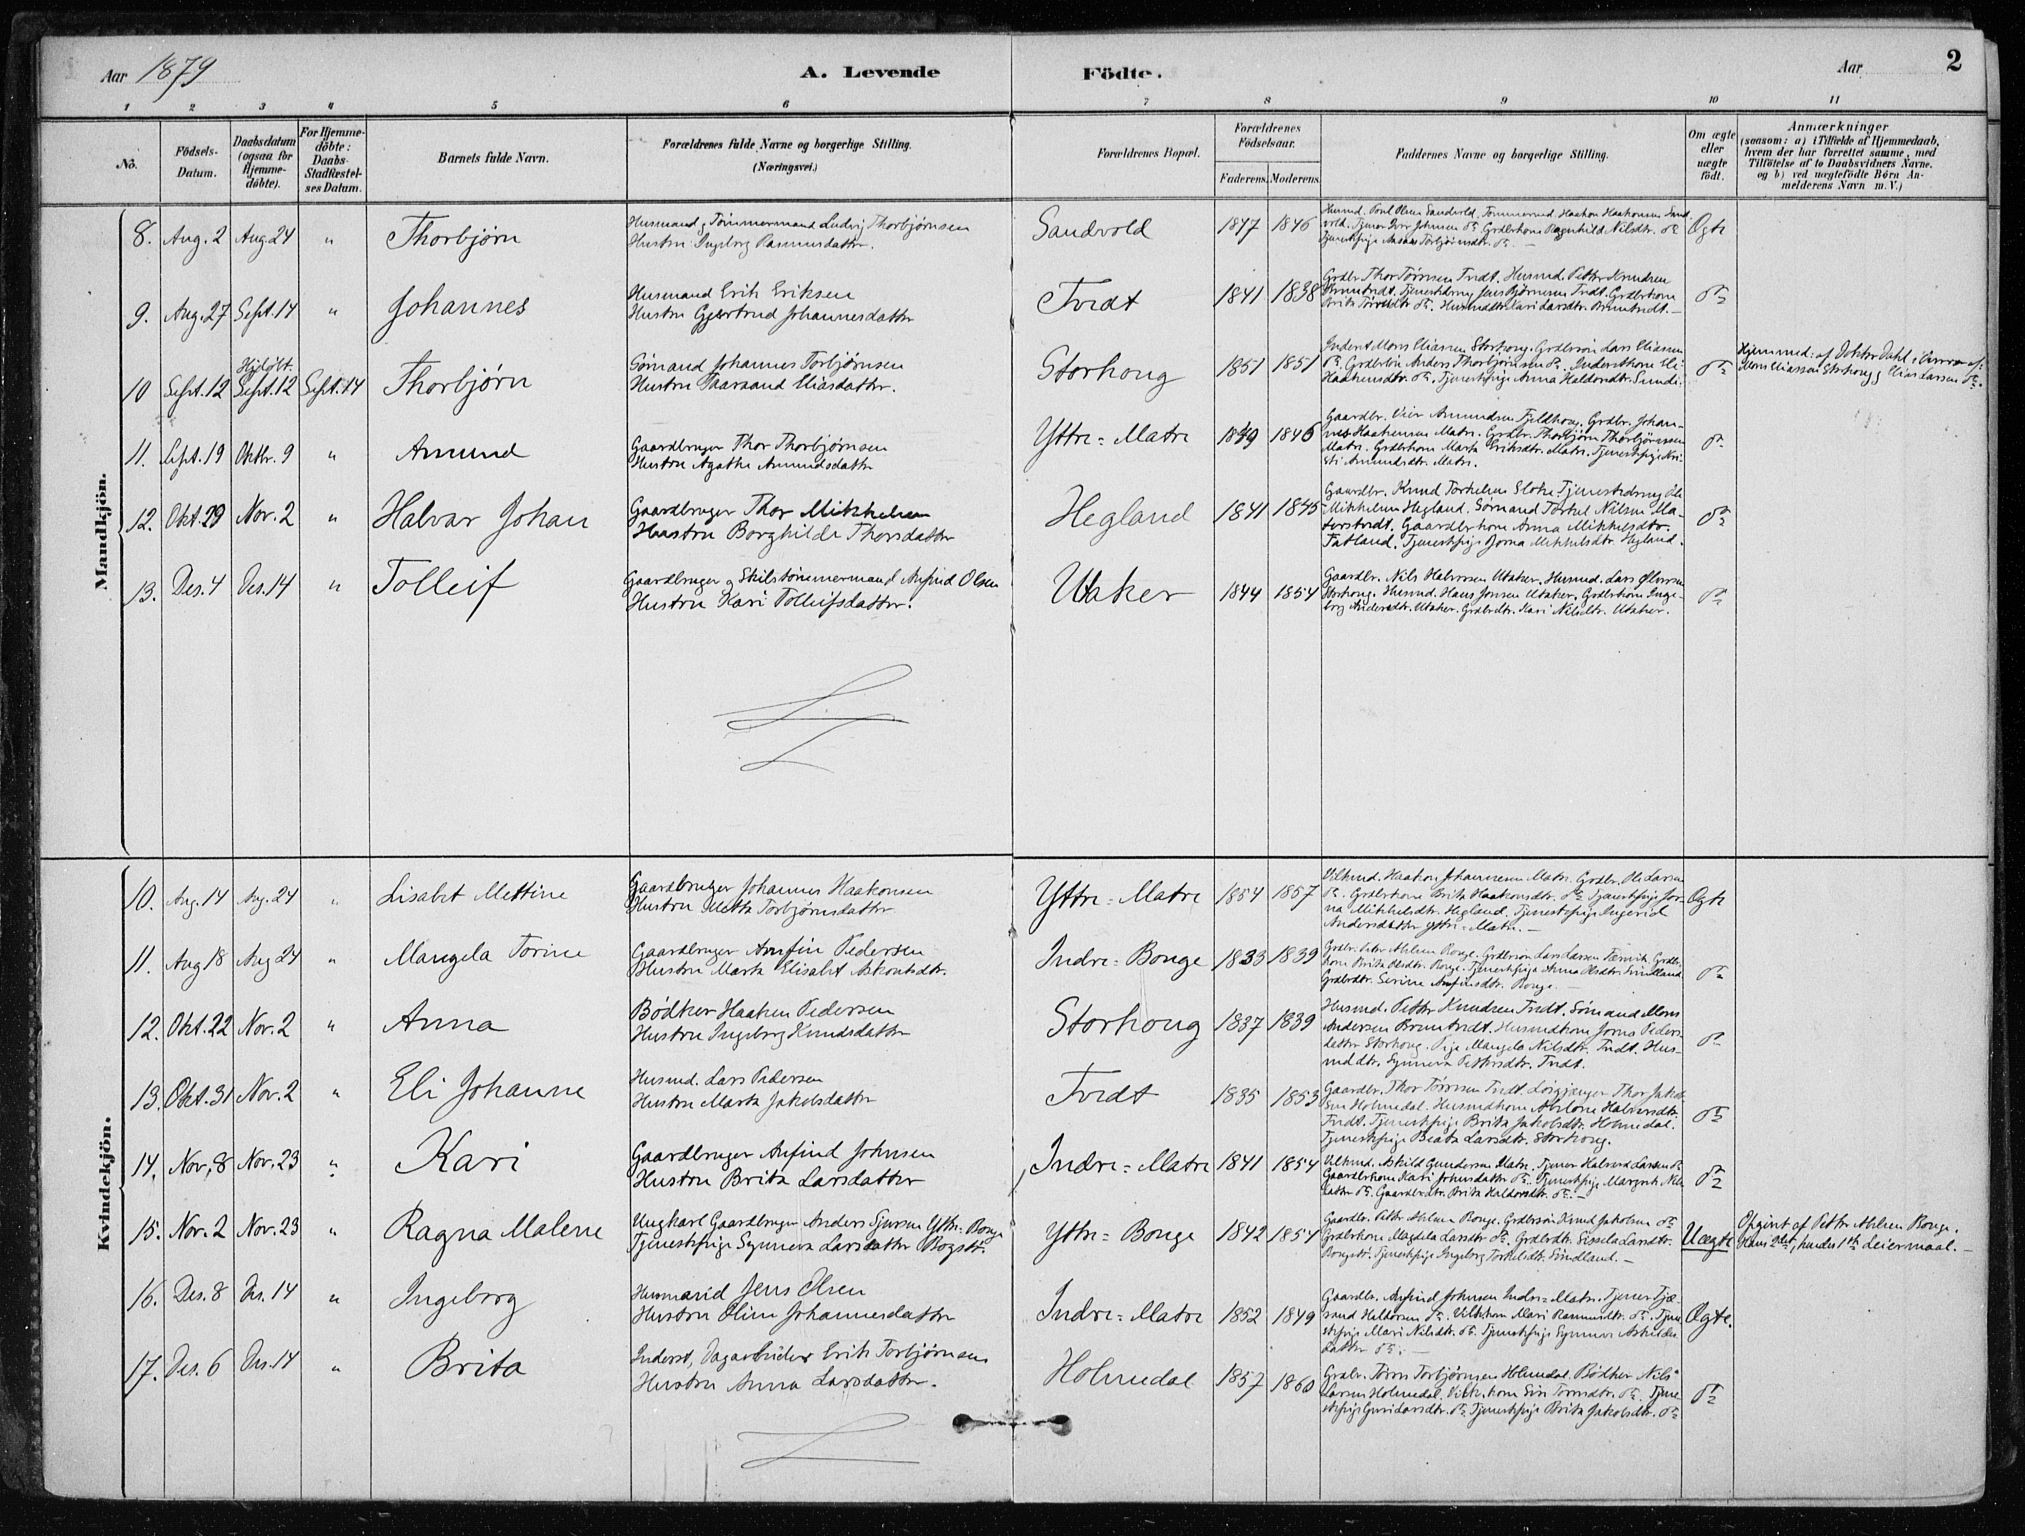 Aar 1879 A. Levende Födte. Aar 2
1 2 3 4 5 6 7 8 9 10 11
No. Födsels-Datum. Daabsdatum (ogsaa for Hjemme-döbte). For Hjemme-döbte: Daabs-Stadfæstel-ses Datum. Barnets fulde Navn. Forældrenes fulde Navne og borgerlige Stilling. (Næringsvei.) Forældrenes Bopæl. Forældrenes Födselsaar. Faderens. Moderens. Faddernes Navne og borgerlige Stilling. Om ægte eller uægte födt. Anmærkninger (saasom: a) i Tilfælde af Hjemmedaab, hvem der har forrettet samme, med Tilföielse af to Daabsvidners Navne. og b) ved uægtefödte Börn An-melderens Navn m. V.)
Mandkjön.
8. Aug. 2 Aug 24 " Thorbjørn
Husmand, Tømmermand Ludvig Thorbjørnsen
Hustru Ingeborg Rasmusdatter.
Sandvold 1847 1846
Husmd. Poul Olsen Sandvold. Tømmermd. Haakon Haakonsen Sand-
vold. Tjener Iver Johnsen do. Grdbrkone Ragnhild Nilsdtr. do.
Tjenestpige Torbjørnsdtr. do. —
Ægte
9. Aug. 27 Sept. 14 " Johannes
Husmand Erik Eriksen
Hustru Gjertrud Johannesdatter
Tvedt 1841 1838
Grdbr. Thor Tørresen Tvedt. Husmd. Petter Knudsen
Bruntvedt. Tjenestdreng Jens Bjørnsen Tvedt. Grdbrkone
Brita do. Husmdsdtr. Kari Larsdtr. Bruntvedt. —
do
10 Sept. 12 Hjdøbt. Sept. 12 Sept. 14 Thorbjørn
Sømand Johannes Torbjørnsen
Hustru Taaraand Eliasdatter.
Storhoug 1851 1851
Inderst Mons Eliassen Storhoug. Grdbrsøn Lars Eliassen
do. Grdbrsøn Anders Thorbjørnsen do. Inderstkone Eli
Haakonsdtr. do. Tjenestpige Anna Haldorsdtr. Sunde.
do
Hjemmed: af Doktor Dahl i Nærvær af:
Mons Eliassen Storhoug, Elias Larsen do.
11. Sept. 19 Oktbr. 9 " Amund
Gaardbruger Thor Thorbjørnsen
Hustru Agathe Amundsdatter
Yttre=Matre 1849 1846
Gaardbr. Vier Amundsen Fjeldhoug. Grdbr. Johan-
nes Haakensen Matre. Grdbr. Thorbjørn Thorbjørnsen
Matre. Grdbrkone Marta Eriksdtr. Matre. Tjenestpige Kri-
sti Amundsdtr. Matre.
do
12. Okt. 29 Nov. 2 " Halvar Johan
Gaardbruger Thor Mikkelsen
Hustru Borghilde Thorsdatter
Hegland 1841 1845
Gaardbr. Knud Torkelsen Eloke. Tjenestedreng Ole
Mikkelsen Hegland. Sømand Torkel Nilsen
Gaardbrkone Anna Mikkelsdtr.
Fatland. Tjenestpige Jorna Mikkelsdtr. Hegland.
do
13. Des. 4 Des. 14 " Tolleif
Gaardbruger og Skibstømmermand Anfind Olsen
Hustru Kari Tolleifsdatter.
Utaker 1844 1854
Gaardbr. Nils Halvorsen Utaker. Husmd. Lars
Storhoug. Husmd. Hans Jonsen Utaker. Grdbrkone Inge-
borg Andersdtr. Utaker. Grdbrdtr. Kari Nilsdtr. Utaker.
do
Kvindekjön.
10. Aug. 14 Aug. 24 " Lisabet Mettine
Gaardbruger Johannes Haakonsen
Hustru Metta Torbjørnsdatter
Yttre=Matre 1854 1857
Vilkmd. Haakon Johannesen Matre. Grdbr. Ole Larsen
do. Grdbrkone Brita Haakonsdtr. do. Tjenestpige Jor-
na Mikkelsdtr. Hegland. Tjenestpige Ingerid
Andersdatter Yttre=Matre. —
Ægte
11. Aug 18 Aug 24 " Mangela Torine
Gaardbruger Amfin Pedersen
Hustru Marta Elisabet Askoutsdtr.
Indre=Bouge 1833 1839
Grdbr. Peter Ahlsen Bouge. Grdbrsøn Lars Larsen Grdbr-
kone Brita Olsdtr. Bouge. Tjenestpige Anna Olsdtr. Sindland
Grdbrdtr. Serine Anfinsdtr. Bouge.
do
12. Okt. 22 Nov. 2 " Anna
Bødker Haaken Pedersen
Hustru Ingeborg Knudsdatter
Storhoug 1837 1839
Husmd. Petter Knudsen Tvedt. Sømand Mons
Andersen Bruntvedt. Husmdkone Jorna Peders-
datter Storhoug. Pige Mangela Nilsdtr. Tvedt. Hus-
mddtr. Synneva Pettersdtr. Tvedt.
do
13. Okt. 31 Nov. 2 " Eli Johanne
Husmd. Lars Pedersen
Hustru Marta Jakobsdatter
Tvedt 1835 1853
Gaardbr. Thor Tørresen Tvedt. Losgjænger Thor Jakob-
sen Holmedal. Husmdkone Abelone Halvorsdtr.
Tvedt. Tjenestpige Brita Jakobsdtr. Holmedal.
Tjenestpige Beata Larsdtr. Storhoug.
do
14. Nov. 8 Nov. 23 " Kari
Gaardbruger Anfind Johnsen
Hustru Brita Larsdatter
Indre=Matre 1841 1854
Vilkmd. Askild Gundersen Matre. Tjener Halvard Larsen do
Gaardbrkone Kari Johnsdatter do. Tjenestpige Margrete Nils-
datter do. Gaardbrdtr. Brita Haldorsdtr. do. —
do
15. Nov. 2 Nov. 23 " Ragna Malene
Ungkarl Gaardbruger Anders Sjursen Yttre=Bouge
Tjenestpige Synneva Larsdatter Bogstr.
Yttre=Bouge 1842 1854
Gaardbr. Petter Ahlsen Bouge. Grdbrsøn Knud Jakobsen do
Grdbrkone Magdela Larsdtr. do. Grdbrdtr. Sissela Larsdtr.
Bougstr. Tjenestpige Ingeborg Torkelsdtr. Sindland. —
Uægte
Opgivet af Petter Ahlsen Bouge.
Hans 2det, hendes 1ste Leiermaal. —
16. Des. 8 Des. 14 " Ingeborg
Husmand Jens Olsen
Hustru Oline Johannesdatter
Indre=Matre 1852 1849
Gaardbr. Anfind Johnsen Indre=Matre. Tjener Tjæ-
rand Haldorsen do. Vilkkone Mari Rasmusdtr. do. Tjene-
stpige Mari Nilsdtr. do. Tjenestpige Synneva Askilds-
datter do. —
Ægte.
17. Des. 6 Des. 14 " Brita
Inderst, Dagarbeider Erik Torbjørnsen
Hustru Anna Larsdatter.
Holmedal 1857 1860
Grdbr. Tørres Torbjørnsen Holmedal. Bødker Nils
Larsen Holmedal. Vilk. kone Siri Tormodsdtr. do. Tjene-
stpige Guri Larsdtr. do. Tjenestpige Brita Jakobsdtr. do
do